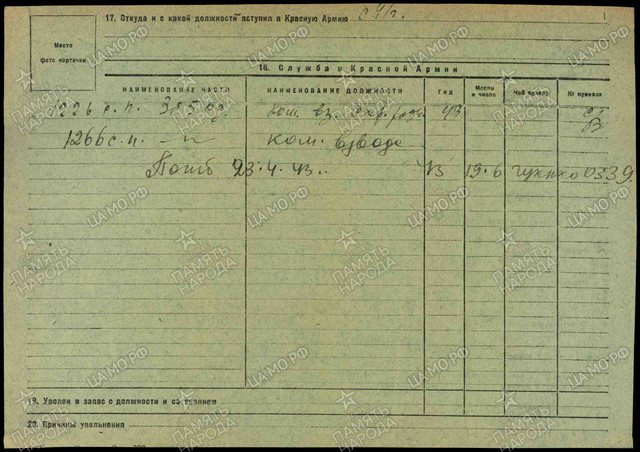 17. Откуда и с какой должности вступил в Красную Армию
Место
фото карточки
18. Служба в Красной Армии
НАИМЕНОВАНИЕ ЧАСТИ НАИМЕНОВАНИЕ ДОЛЖНОСТИ Год Месяц и число Чей приказ № приказа
ком. вз. 43
1266 с.п. -"- ком. взвода
Погиб 23.4.43.. 43 19.6 гукнко 0339
19. Уволен в запас с должности и со званием
20. Причины увольнения
ПАМЯТЬ НАРОДА
ЦАМО.РФ